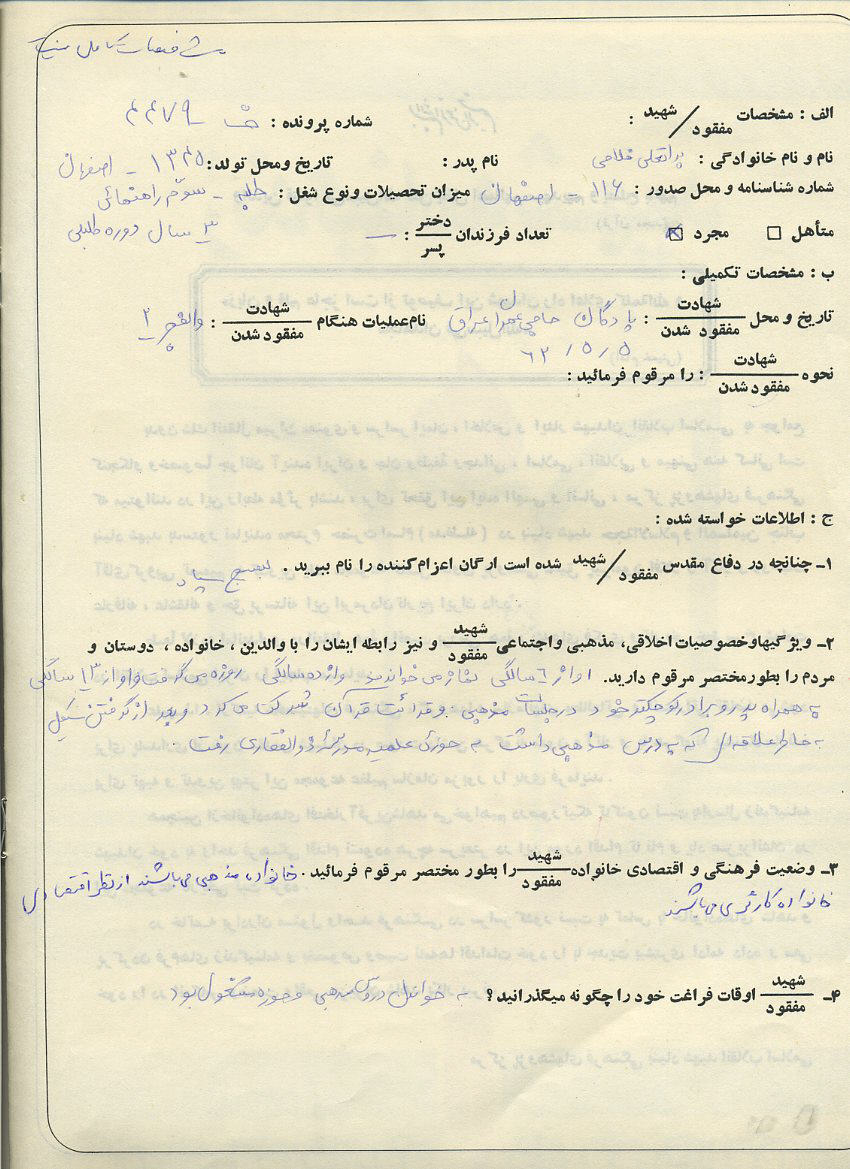 مشخصات کامل نیست
الف : مشخصات شهید / مفقود : شماره پرونده : ۴۴۷۹
نام و نام خانوادگی : غلامی نام پدر : تاریخ ومحل تولد : ۱۳۴۵ - اصفهان
شماره شناسنامه و محل صدور : ۱۱۶ - اصفهان میزان تحصیلات ونوع شغل : طلبه - سوم راهنمائی
متأهل ☐ مجرد ☒ تعداد فرزندان دختر / پسر : — ۳ سال دوره طلبگی
ب : مشخصات تکمیلی :
تاریخ و محل شهادت / مفقود شدن : پادگان حاجی عمران عراق نام‌عملیات هنگام شهادت / مفقود شدن : والفجر ۲
۶۲/۵/۵
نحوه شهادت / مفقود شدن : را مرقوم فرمائید :
ج : اطلاعات خواسته شده :
۱ـ چنانچه در دفاع مقدس شهید / مفقود شده است ارگان اعزام‌کننده را نام ببرید . بسیج سپاه
۲ـ ویژگیهاوخصوصیات اخلاقی، مذهبی واجتماعی شهید / مفقود و نیز رابطه ایشان را با والدین ، خانواده ، دوستان و
مردم را بطورمختصر مرقوم دارید. او از ۶ سالگی نماز می‌خواند سالگی روزه می‌گرفت و او از ۱۳ سالگی
به همراه پدر و برادر کوچکتر خود در جلسات مذهبی و قرائت قرآن شرکت می‌کرد و بعد از گرفتن سیکل
به خاطر علاقه‌ای که به درس مذهبی داشت به حوزه علمیه مدرسه ذوالفقاری رفت .
۳ـ وضعیت فرهنگی و اقتصادی خانواده شهید / مفقود را بطور مختصر مرقوم فرمائید . خانواده مذهبی می‌باشند از نظر اقتصادی
خانواده کارگری می‌باشند
۴ـ شهید / مفقود اوقات فراغت خود را چگونه میگذرانید؟ به خواندن دروس مذهبی و حوزه مشغول بود